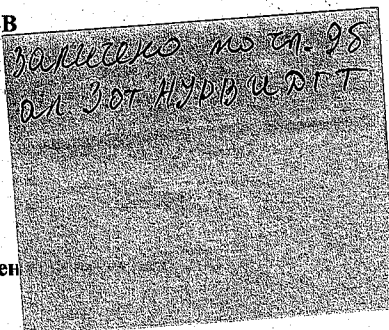 -В
заличено по чл. 9б
ал 3 от НУРВИДГТ
ен